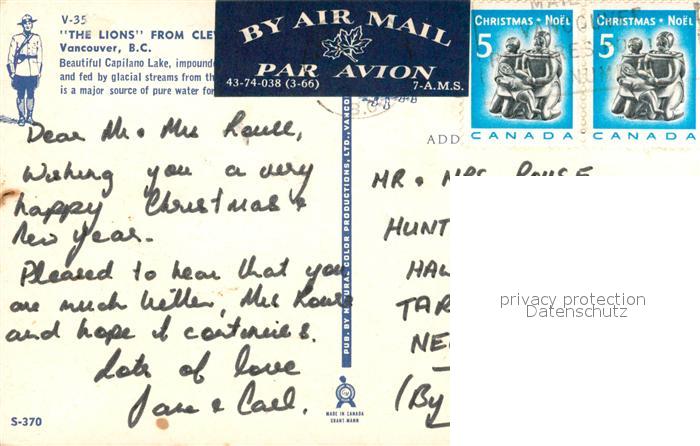 V-35
"THE LIONS" FROM CLE
Vancouver, B.C.
Beautiful Capilano Lake, impounde
and fed by glacial streams from th
is a major source of pure water for
BY AIR MAIL
PAR AVION
43-74-038 (3-66) 7-A.M.S.
CHRISTMAS • NOËL
5
CANADA
CHRISTMAS • NOËL
5
CANADA
MAIL
VANCOUVER
B.C.
Dear Mr & Mrs Rouse,
Wishing you a very
happy Christmas &
New Year.
Pleased to hear that you
are much better, Mrs Rouse
and hope it continues.
Lots of love
Jane & Carl.
S-370
PUB. BY NATURAL COLOR PRODUCTIONS, LTD., VANCO
MADE IN CANADA
GRANT-MANN
ADD
MR & MRS ROUSE
HUNT
HAW
TAR
NE
(By
privacy protection
Datenschutz